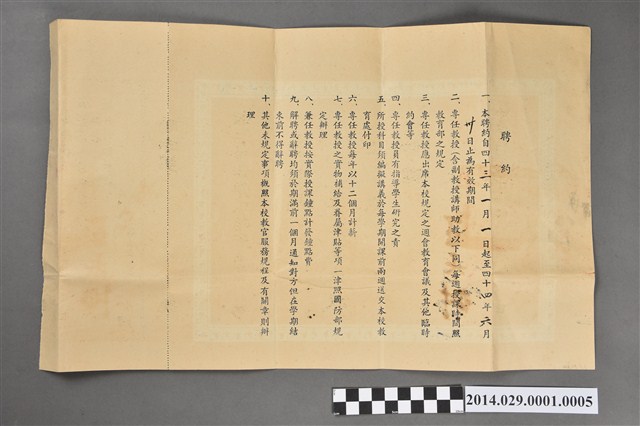 聘約
一、本聘約自四十三年一月一日起至四十四年六月
卅日止為有效期間
二、專任教授（含副教授講師助教以下同）每週授課時間照
教育部之規定
三、專任教授應出席本校規定之週會教育會議及其他臨時
約會等
四、專任教授員有指導學生研究之責
五、所授科目須編擬講義於每學期開課前兩週送交本校教
育處付印
六、專任教授每年以十二個月計薪
七、專任教授之實物補給及眷屬津貼等項一律照國防部規
定辦理
八、兼任教授按實際授課鐘點計發鐘點費
九、解聘或辭聘均須於期滿前一個月通知對方但在學期結
束前不得辭聘
十、其他未規定事項概照本校教官服務規程及有關章則辦
理
2014.029.0001.0005